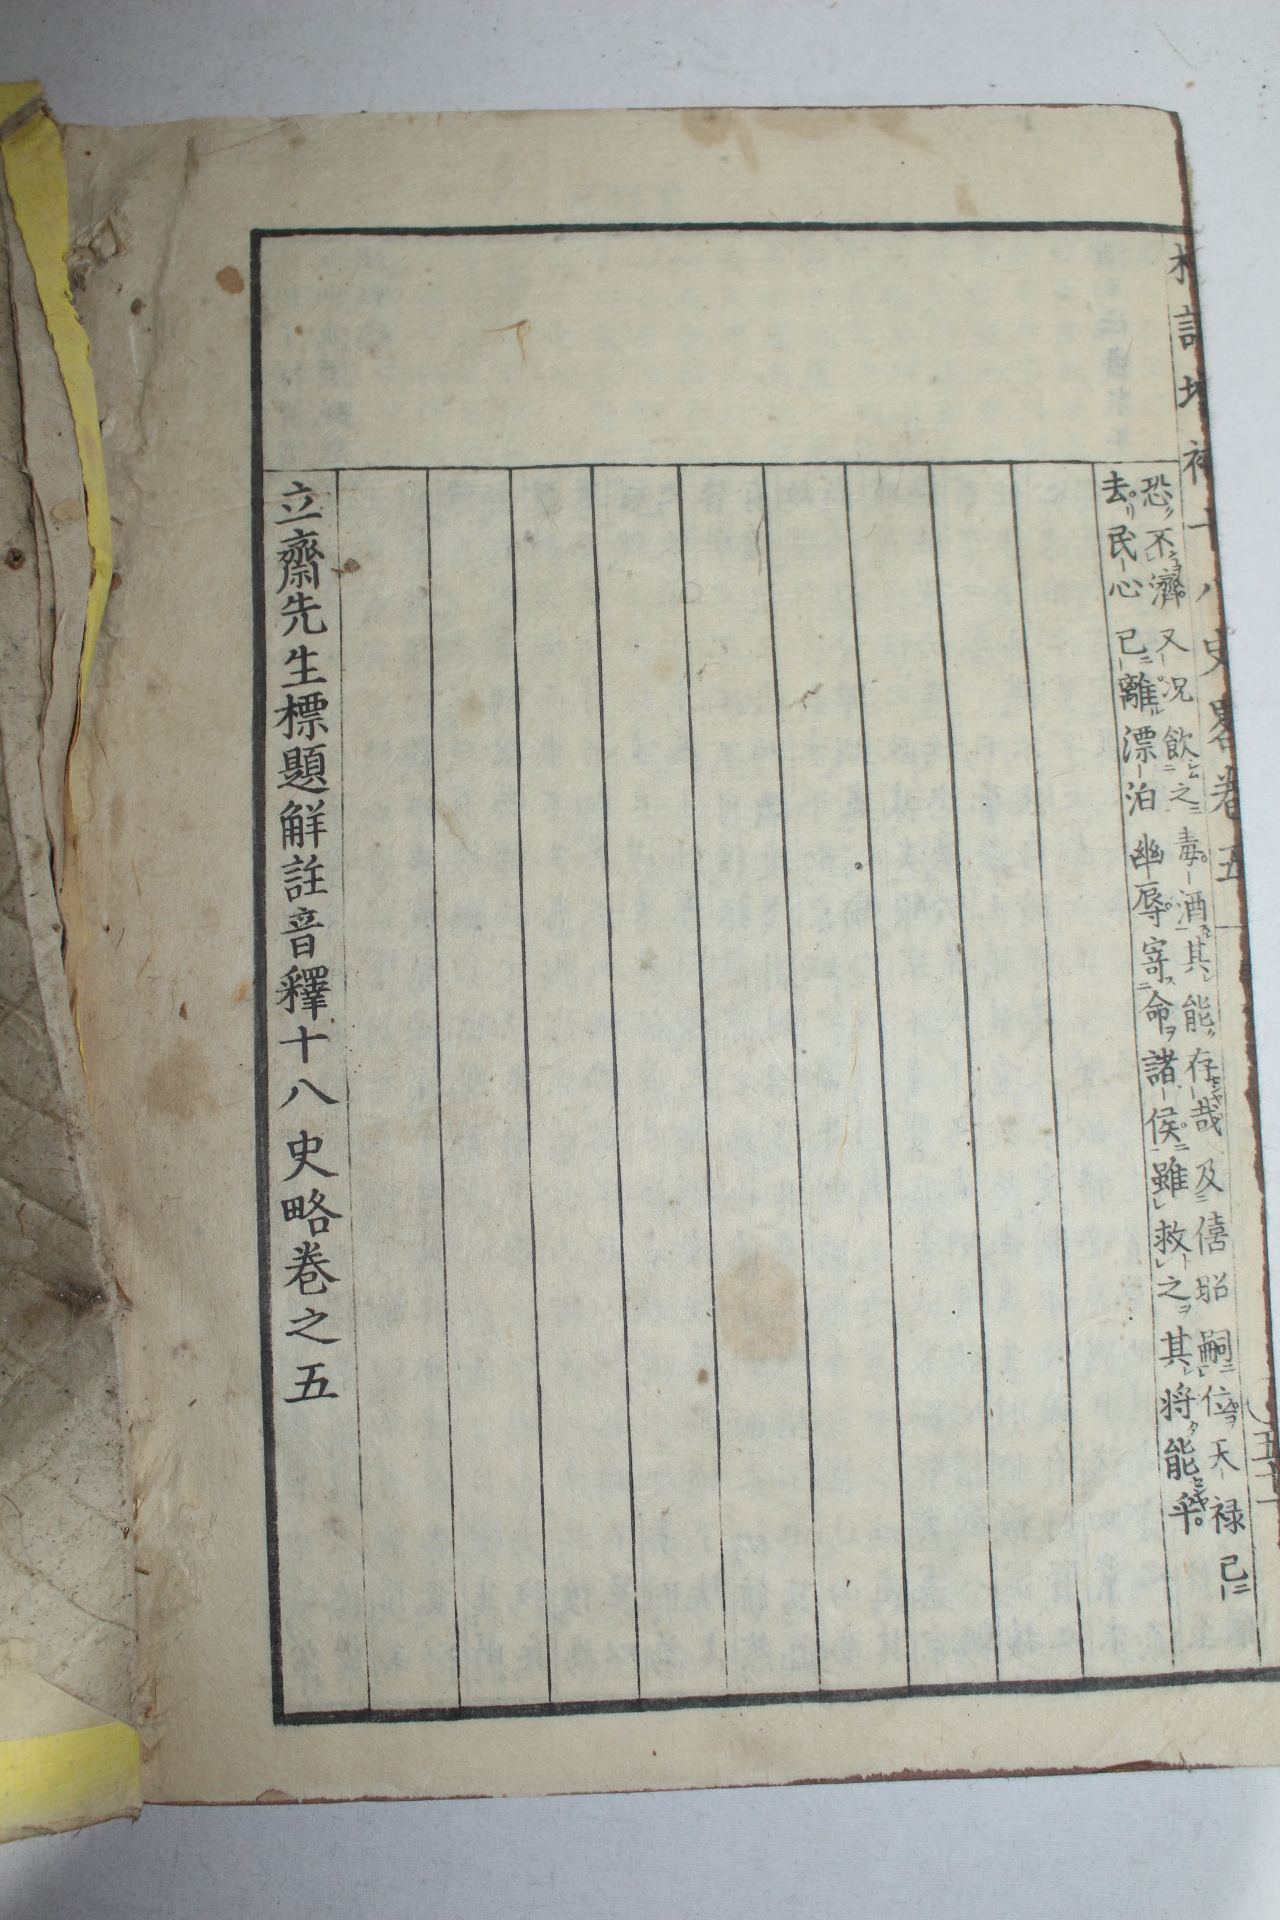 史畧卷五
恐不濟又況飲之毒酒其能存哉及僖昭嗣位天禄已
去民心已離漂泊幽辱寄命諸侯雖救之其将能乎
立齋先生標題解註音釋十八史略巻之五